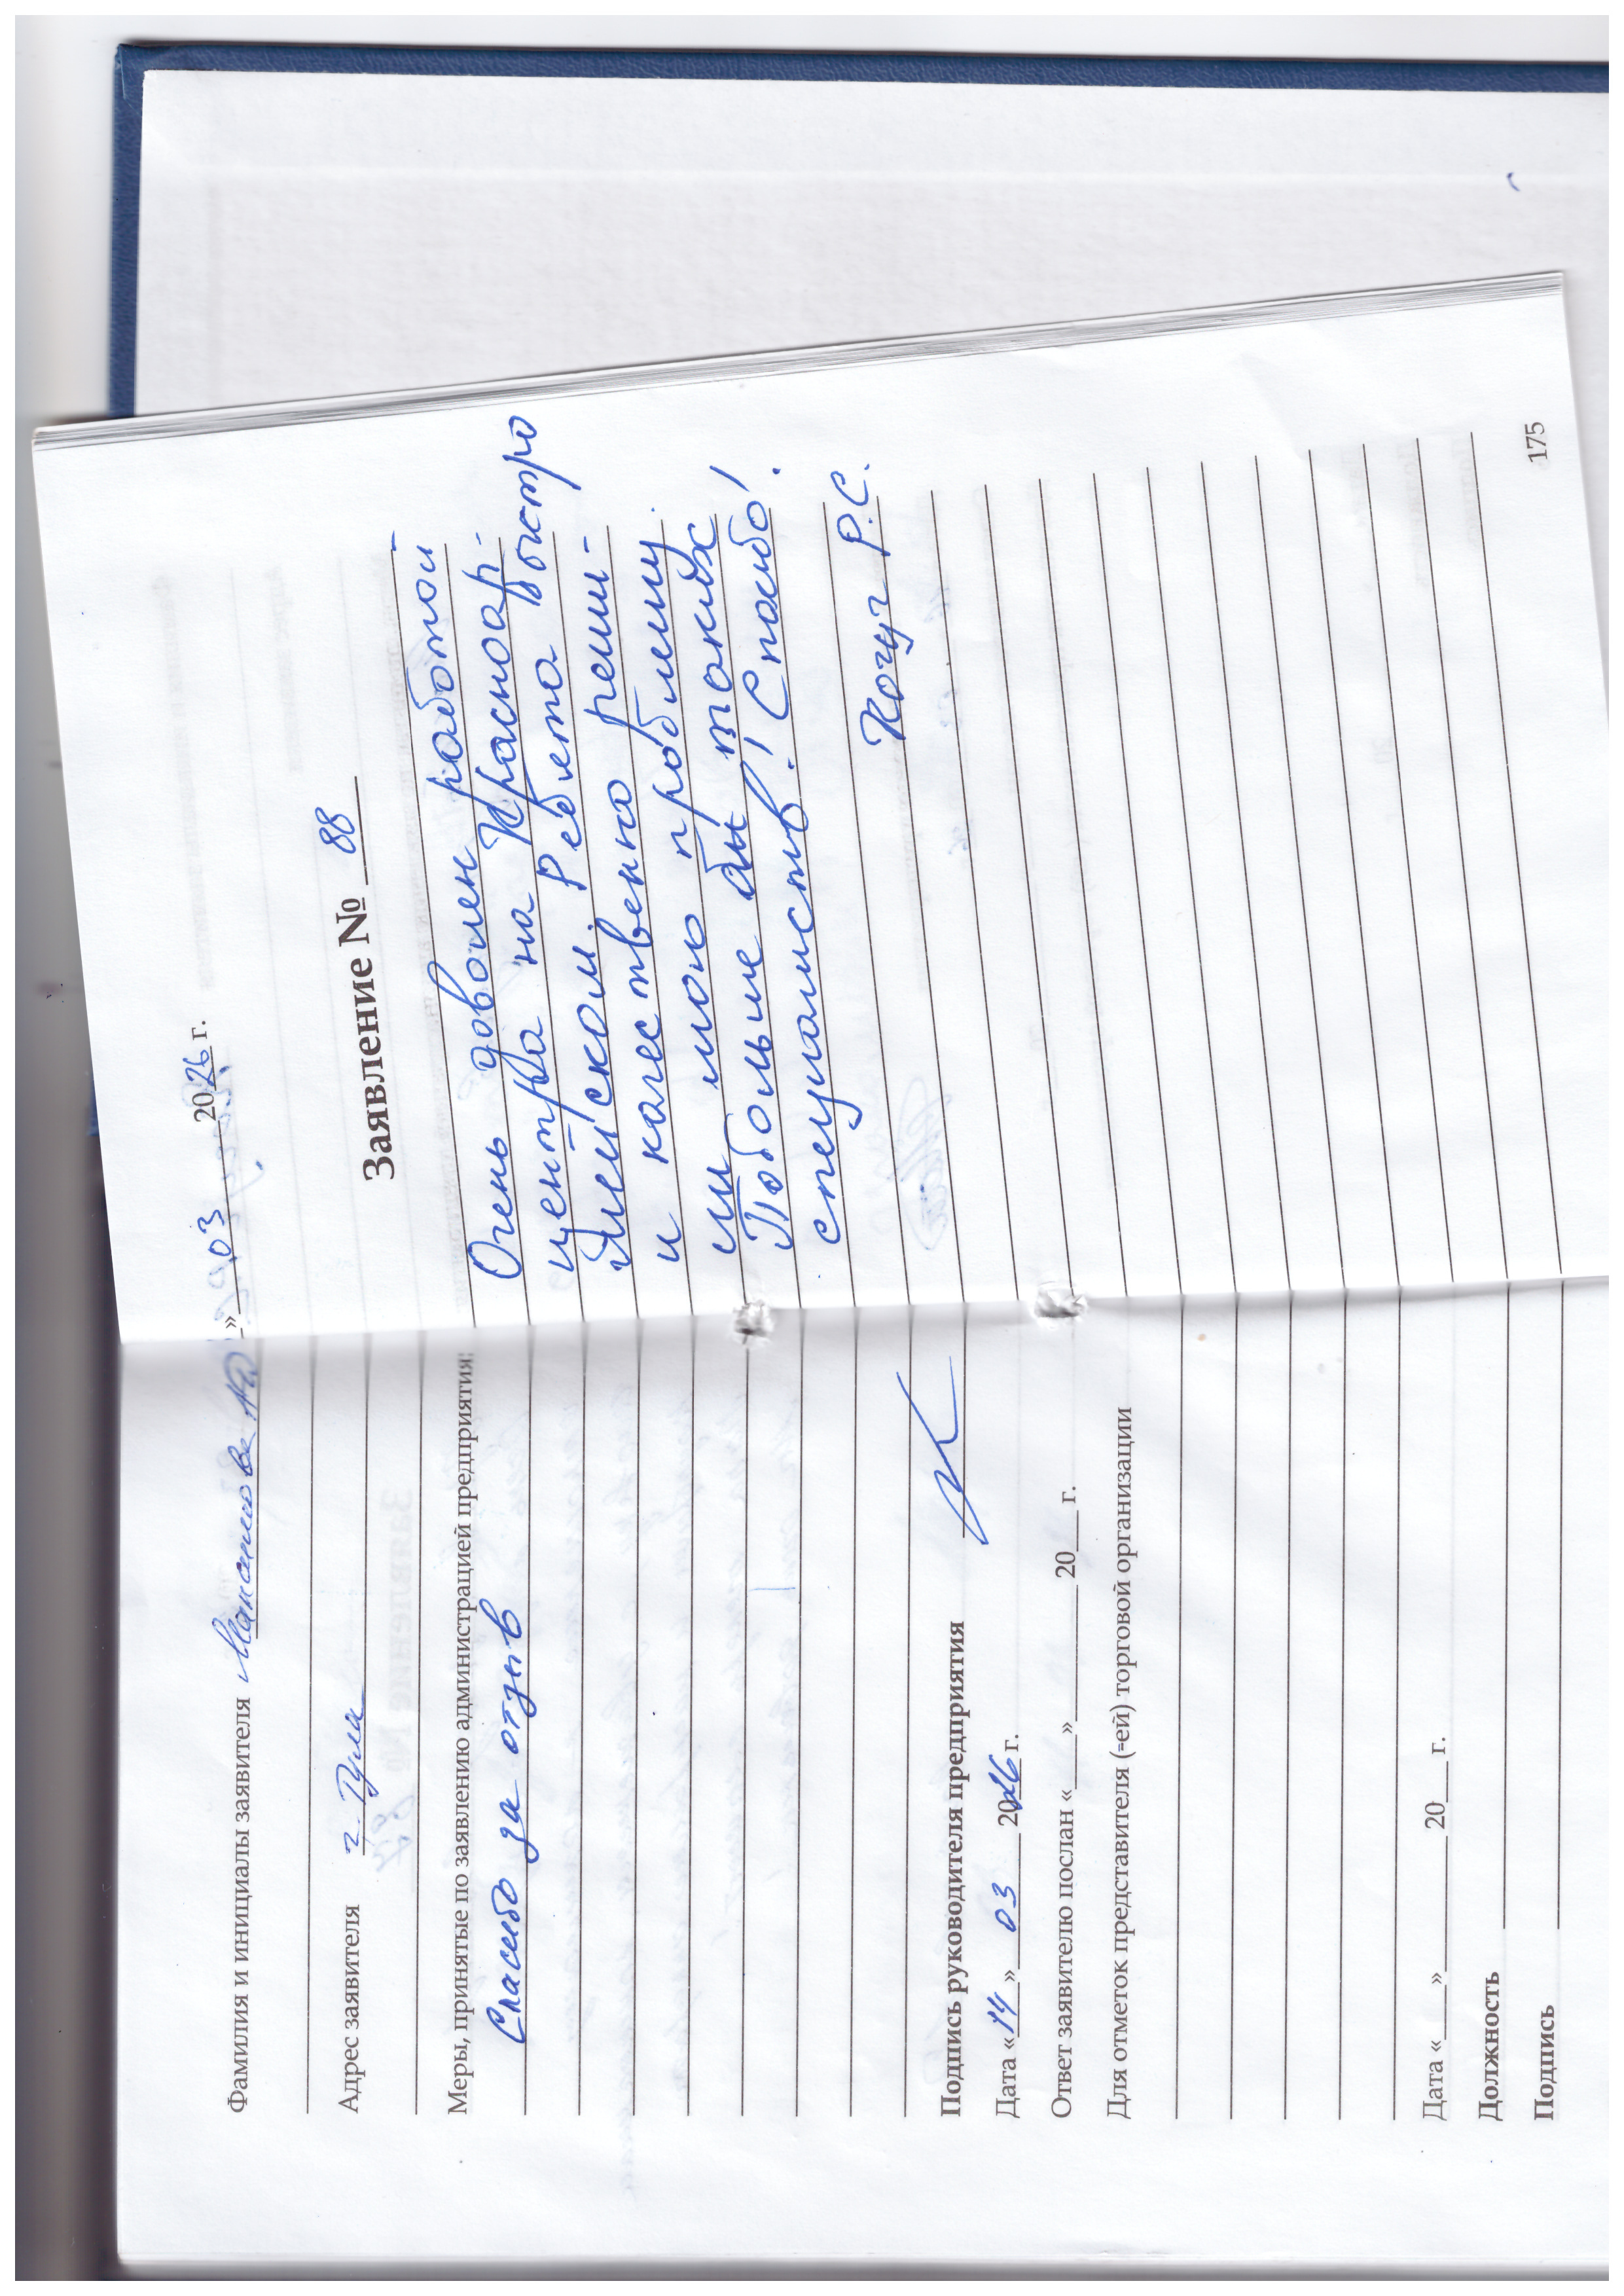 Фамилия и инициалы заявителя
Адрес заявителя г. Тула
Меры, принятые по заявлению администрацией предприятия:
Спасибо за отзыв
Подпись руководителя предприятия
Дата «14» 03 2026 г.
Ответ заявителю послан «___»________ 20___ г.
Для отметок представителя (=ей) торговой организации
Дата «___»________ 20___ г.
Должность
Подпись
» 03 2026 г.
Заявление № 88
Очень доволен работой
центра на Краснар-
мейском. Ребята быстро
и качественно реши-
ли мою проблему.
Побольше бы таких
специалистов! Спасибо!
Р.С.
175